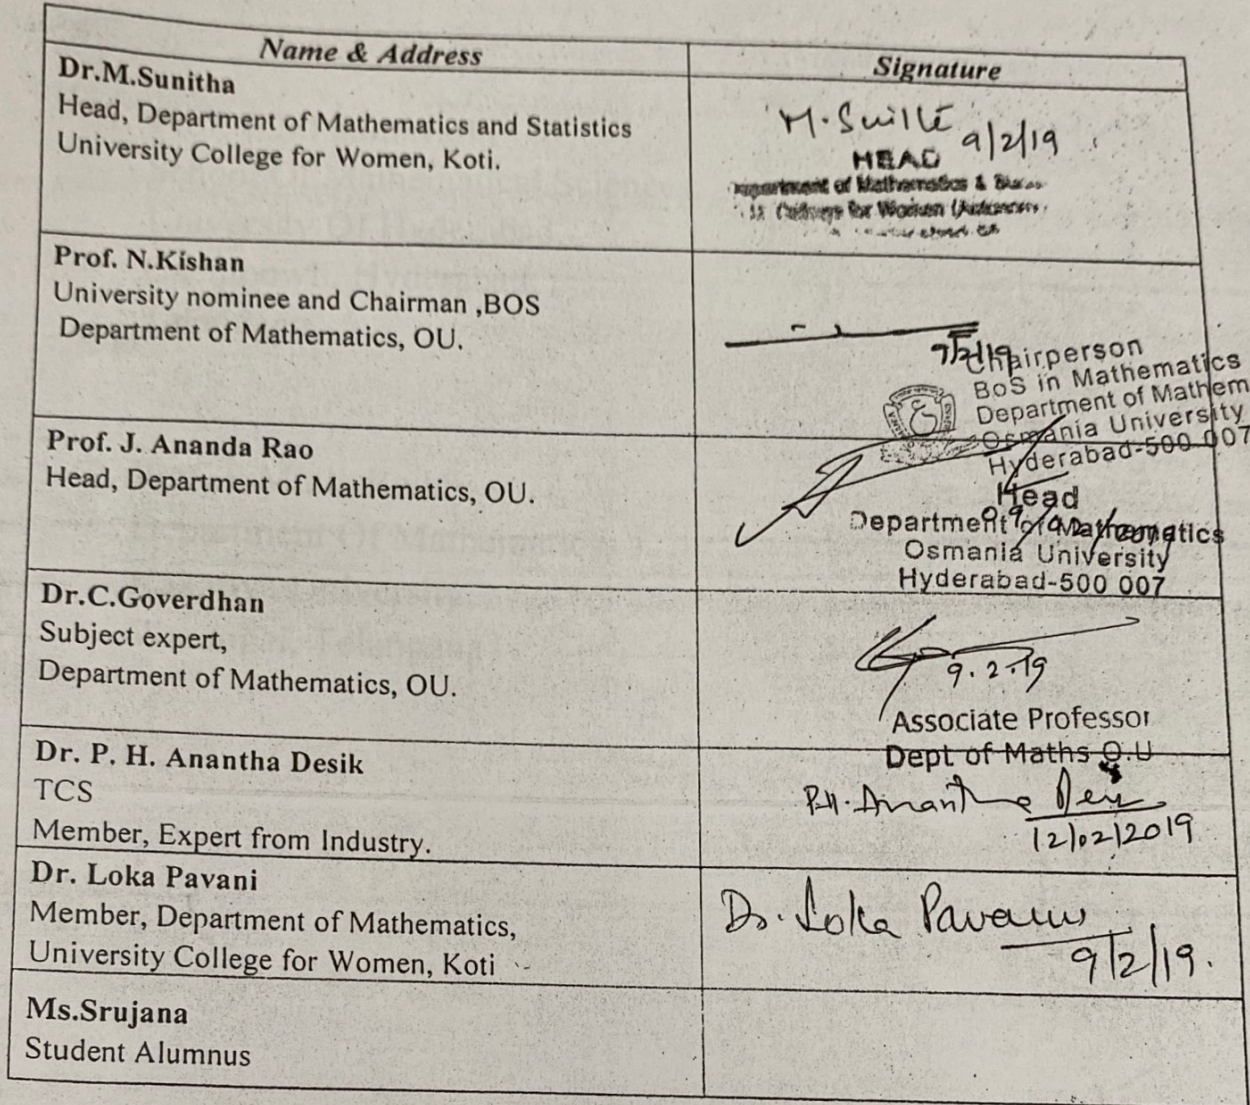 Name & Address
Signature
Dr.M.Sunitha
Head, Department of Mathematics and Statistics
University College for Women, Koti.
9/2/19
HEAD
of Mathematics &
for Women
Prof. N.Kishan
University nominee and Chairman ,BOS
Department of Mathematics, OU.
9/2/19
Chairperson
BoS in Mathematics
Department of Mathem
Osmania University
Hyderabad-500 007
Prof. J. Ananda Rao
Head, Department of Mathematics, OU.
Head
Department of Mathematics
Osmania University
Hyderabad-500 007
Dr.C.Goverdhan
Subject expert,
Department of Mathematics, OU.
9.2.19
Associate Professor
Dept of Maths O.U
Dr. P. H. Anantha Desik
TCS
Member, Expert from Industry.
P.H. Anantha
12/02/2019
Dr. Loka Pavani
Member, Department of Mathematics,
University College for Women, Koti
Dr. Loka Pavani
9/2/19.
Ms.Srujana
Student Alumnus